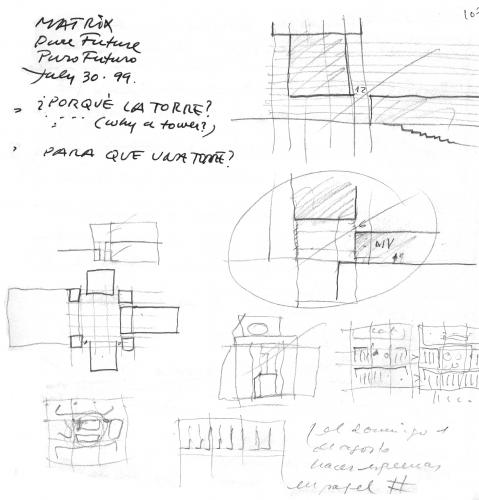 MATRIX
Pure Future
Puro Futuro
July 30·99.
10
¿PORQUÉ LA TORRE?
(why a tower?)
PARA QUE UNA TORRE?
12
6
el domingo 1
de agosto
haces esquemas
en papel #